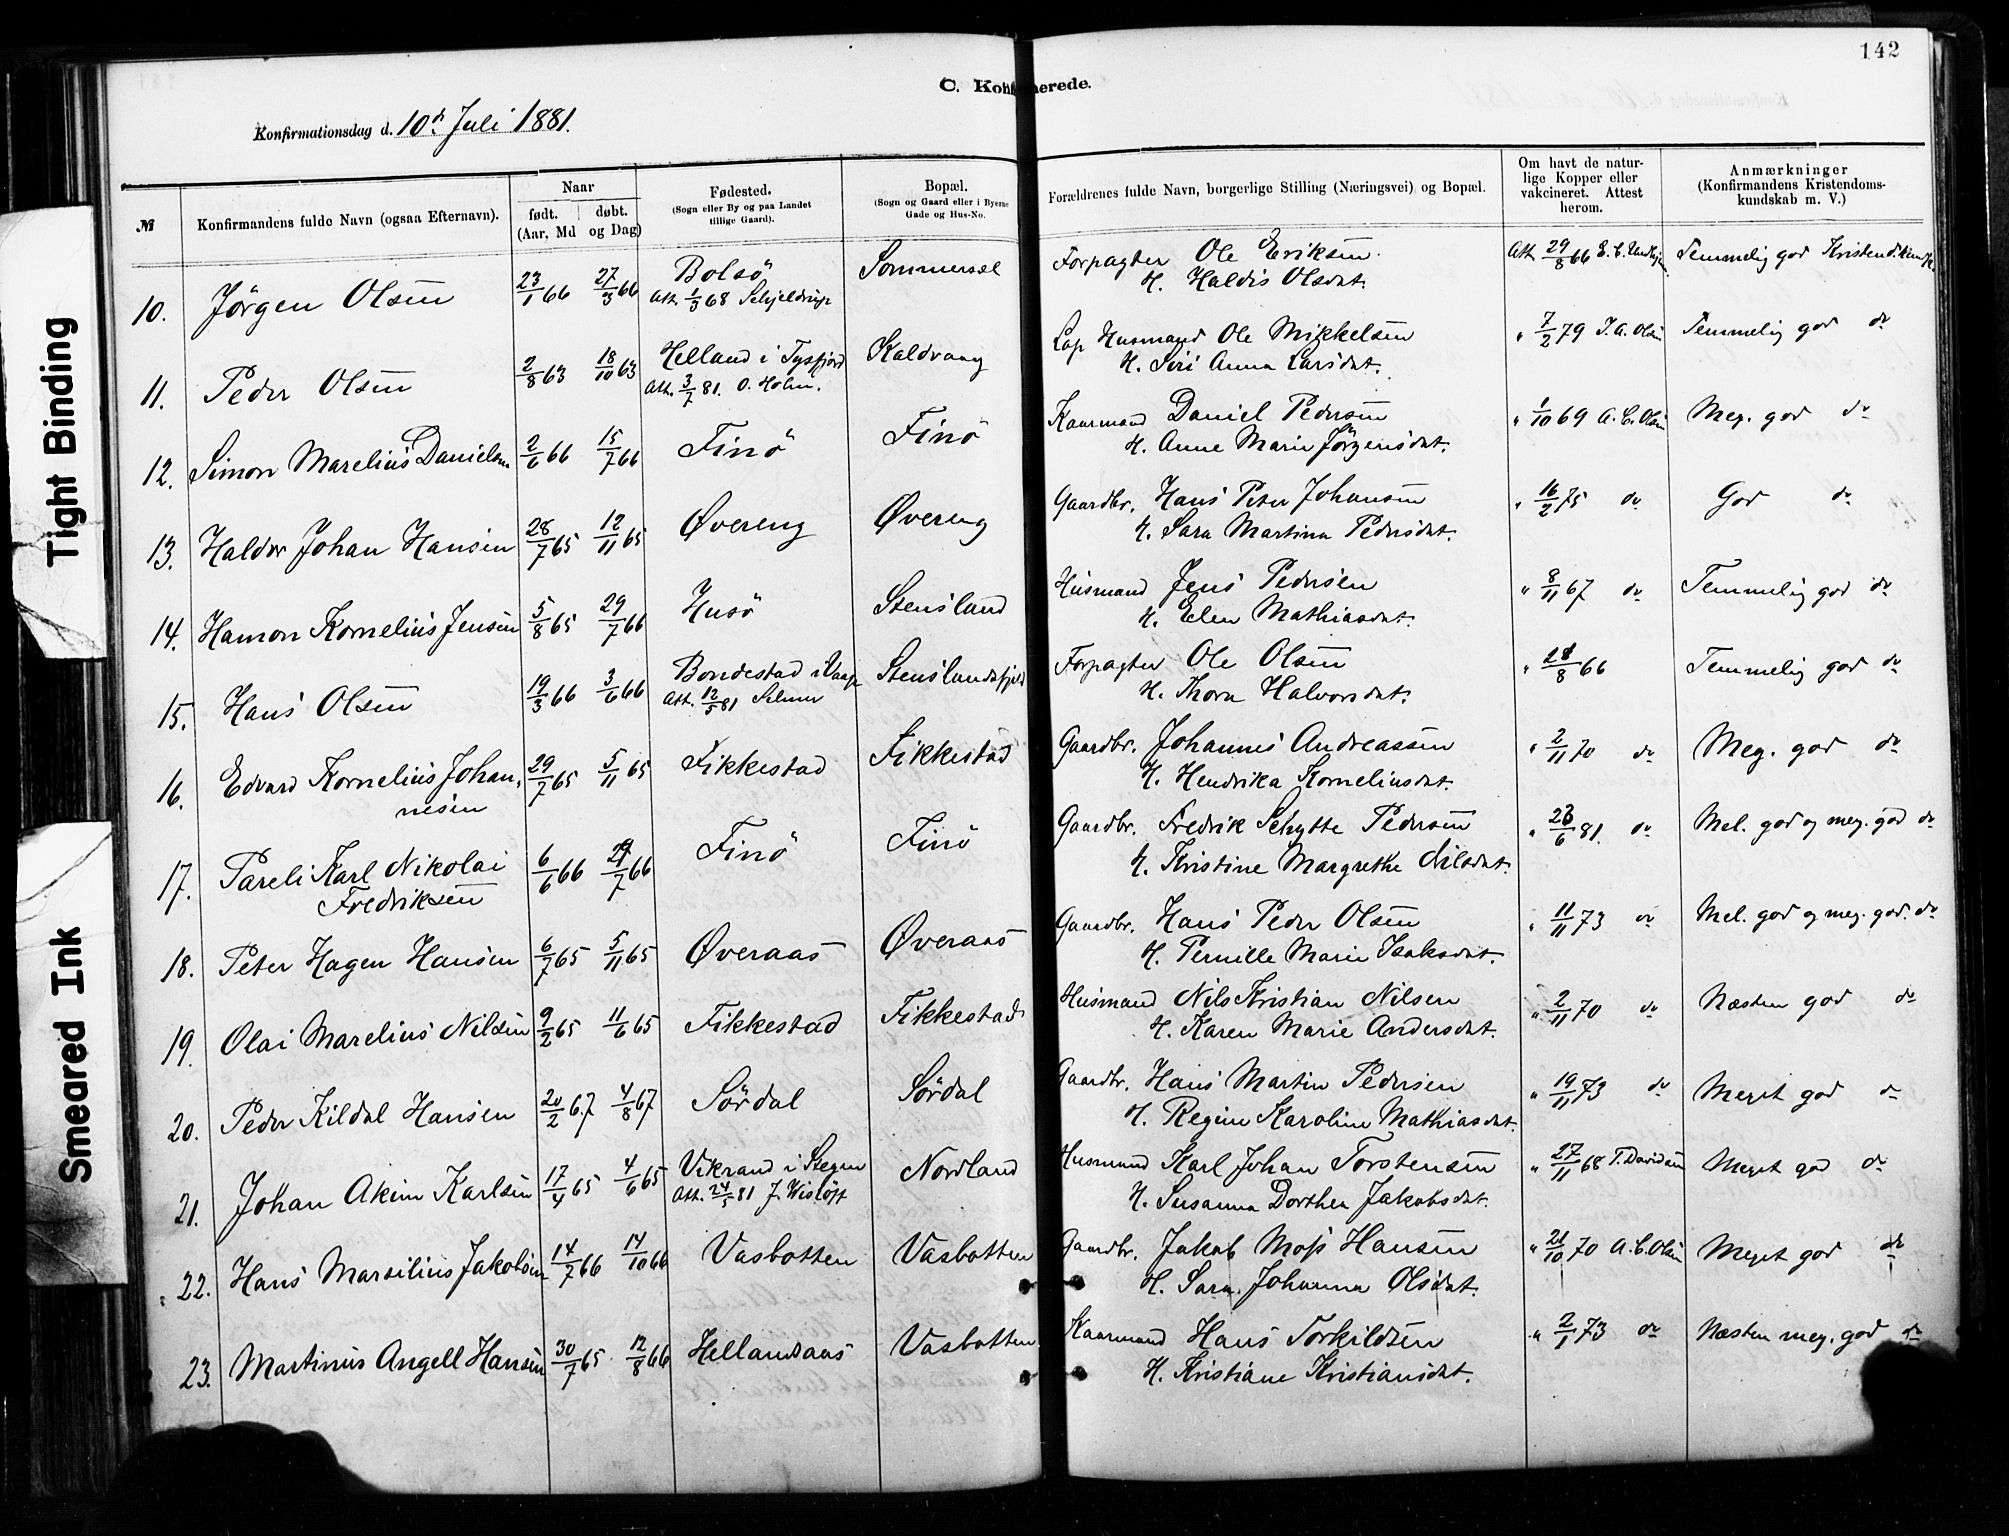 142
C. Konfirmerede.
Konfirmationsdag d. 10de Juli 1881.
№
Konfirmandens fulde Navn (ogsaa Efternavn).
Naar
født. døbt.
(Aar, Md og Dag)
Fødested.
(Sogn eller By og paa Landet
tillige Gaard).
Bopæl.
(Sogn og Gaard eller i Byerne
Gade og Hus-No.
Forældrenes fulde Navn, borgerlige Stilling (Næringsvei) og Bopæl.
Om havt de natur-
lige Kopper eller
vakcineret. Attest
herom.
Anmærkninger
(Konfirmandens Kristendoms-
kundskab m. V.)
10. Jörgen Olsen 23/1 66 27/3 66 Bolsö Sommersel Forpagter Ole Eriksen Att. 29/8 66 Temmelig god
Att. 1/3 68 Schjeldrup H. Haldis Olsdat.
11. Peder Olsen 2/8 63 18/10 63 Helland i Tysfjord Kaldvaag Lap Husmand Ole Mikkelsen " 7/2 79 J. A. Olsen Temmelig god do
Att. 3/7 81. O. Holm. H. Siri Anna Larsdat.
12. Simon Marelius Danielsen 2/6 66 15/7 66 Finö Finö Kaarmand Daniel Pedersen " 1/10 69 A. C. Olsen Meg. god do
H. Anne Marie Jörgensdat.
13. Haldor Johan Hansen 28/7 65 12/11 65 Øvereng Øvereng Gaardbr. Hans Peter Johansen " 16/2 75 do God do
H. Sara Martina Pedersdat.
14. Hamon Kornelius Jensen 5/8 65 29/7 66 Husö Stensland Husmand Jens Pedersen " 8/11 67 do Temmelig god do
H. Elen Mathiasdat.
15. Hans Olsen 19/3 66 3/6 66 Bondestad i Vaage Stenslandsfjeld Forpagter Ole Olsen " 28/8 66 Temmelig god do
Att. 12/5 81 Selmer H. Thora Halvorsdat.
16. Edvard Kornelius Johan- 29/7 65 5/11 65 Fikkestad Fikkestad Gaardbr. Johannes Andreassen " 2/11 70 do Meg. god do
nesen H. Hendrika Korneliusdat.
17. Pareli Karl Nikolai 6/6 66 29/7 66 Finö Finö Gaardbr. Fredrik Schytte Pedersen " 26/6 81. do Mel. god og meg. god do
Fredriksen H. Kristine Margrethe Nilsdat.
18. Peter Hagen Hansen 6/7 65 5/11 65 Øveraas Øveraas Gaardbr. Hans Peder Olsen " 11/11 73 do Mel. god og meg. god. do
H. Pernille Marie Isaksdat.
19. Olai Marelius Nilsen 9/2 65 11/6 65 Fikkestad Fikkestad Husmand Nils Kristian Nilsen " 2/11 70 do Næsten god do
H. Karen Marie Andersdat.
20. Peder Kildal Hansen 20/2 67 4/8 67 Sördal Sördal Gaardbr. Hans Martin Pedersen " 19/11 73 do Meget god do
H. Regine Karoline Mathiasdat.
21. Johan Akim Karlsen 17/4 65 4/6 65 Vikrand i Stegen Nordland Husmand Karl Johan Torstensen " 27/11 68 T. Davidsen Meget god do
Att. 24/5 81 J. Wislöff H. Susanna Dorthea Jakobsdat.
22. Hans Marsilius Jakobsen 14/7 66 14/10 66 Vasbotten Vasbotten Gaardbr. Jakob Moss Hansen " 21/10 70 A. C. Olsen Meget god do
H. Sara Johanna Olsdat.
23. Martinus Angell Hansen 30/7 65 12/8 66 Hellandsaas Vasbotten Kaarmand Hans Torkildsen " 2/1 73 do Næsten meg. god do
H. Kristiane Kristiansdat.
Tight Binding
Smeared Ink